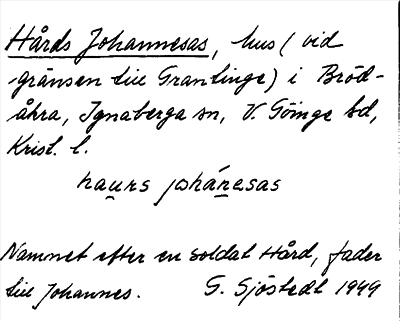 Hårds Johannesas, hus (vid
gränsen till Grantinge) i Bröd-
åkra, Ignaberga sn, V. Göinge hd,
Krist. l.
hau̯rs johánesas
Namnet efter en soldat Hård, fader
till Johannes. G. Sjöstedt 1949